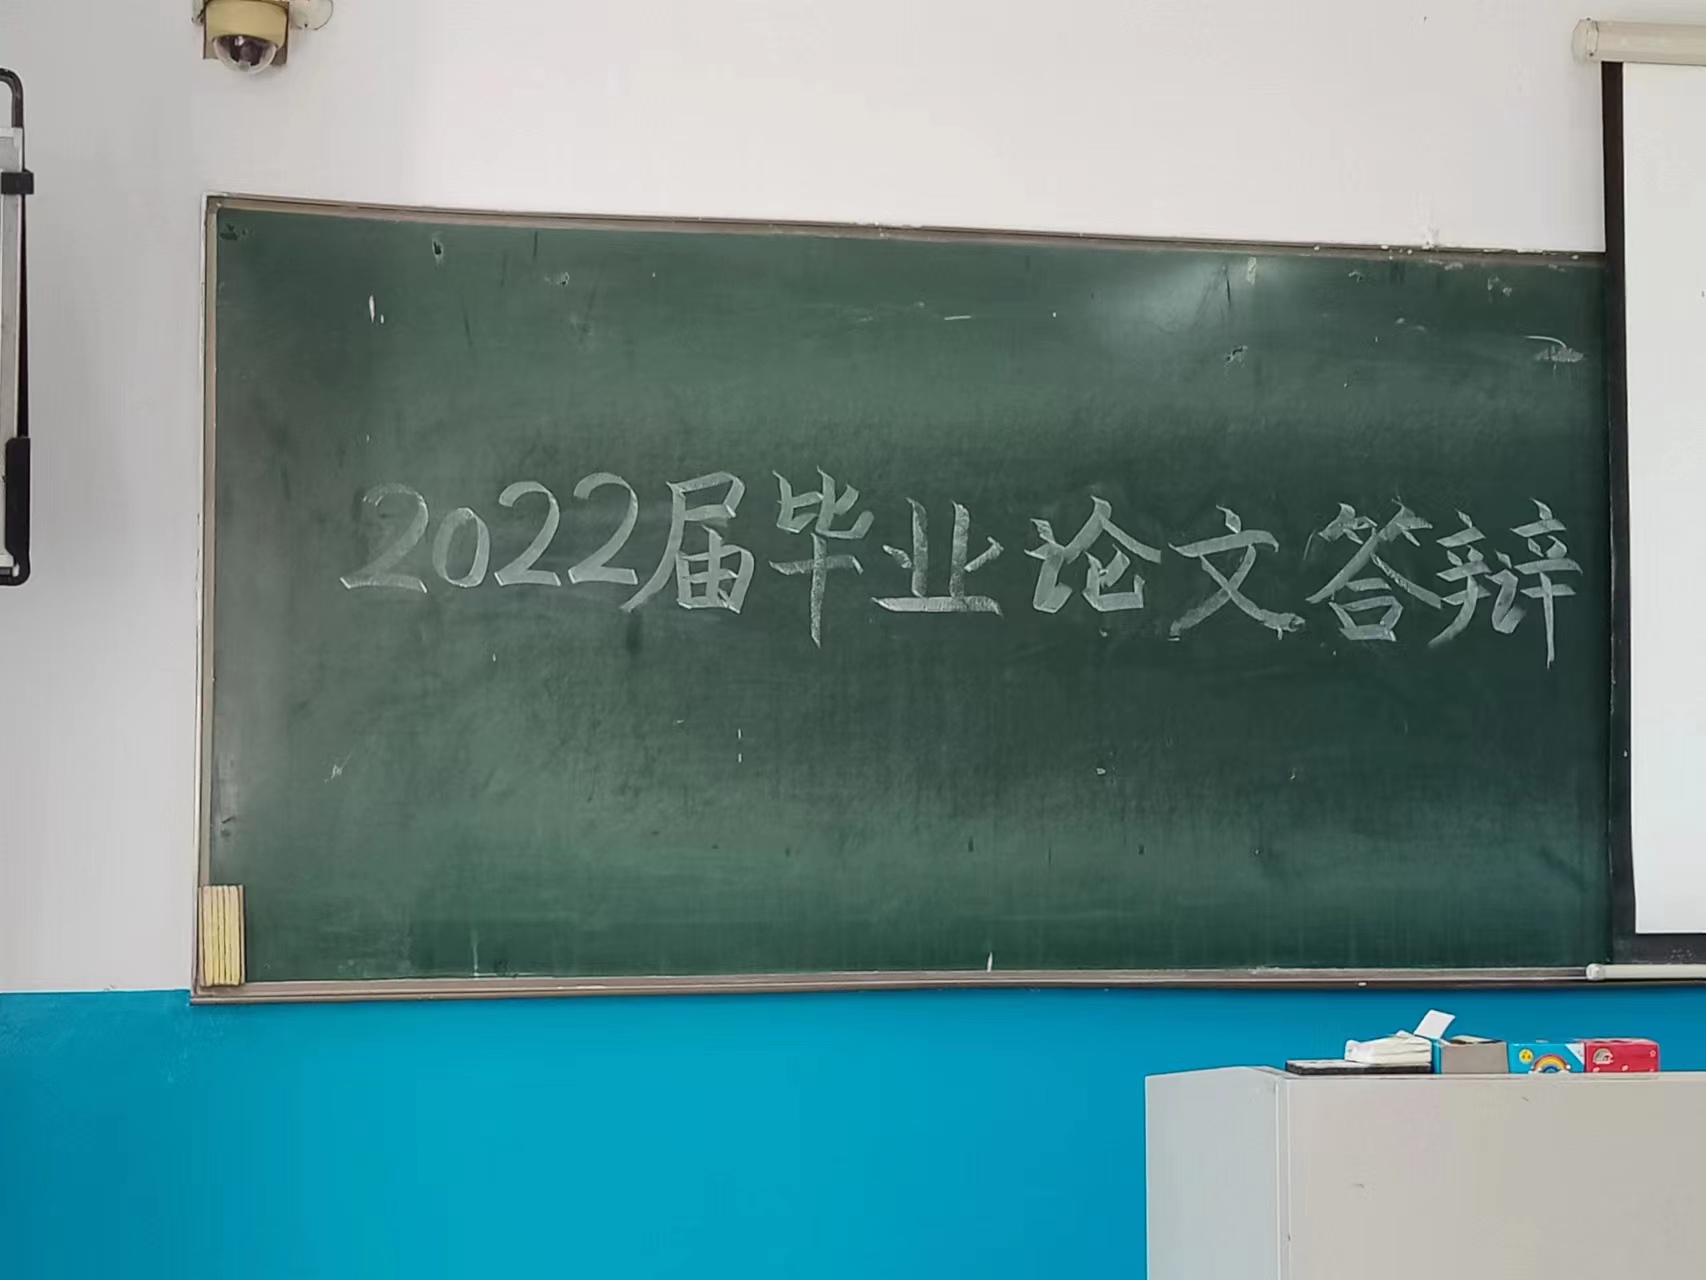 2022届毕业论文答辩